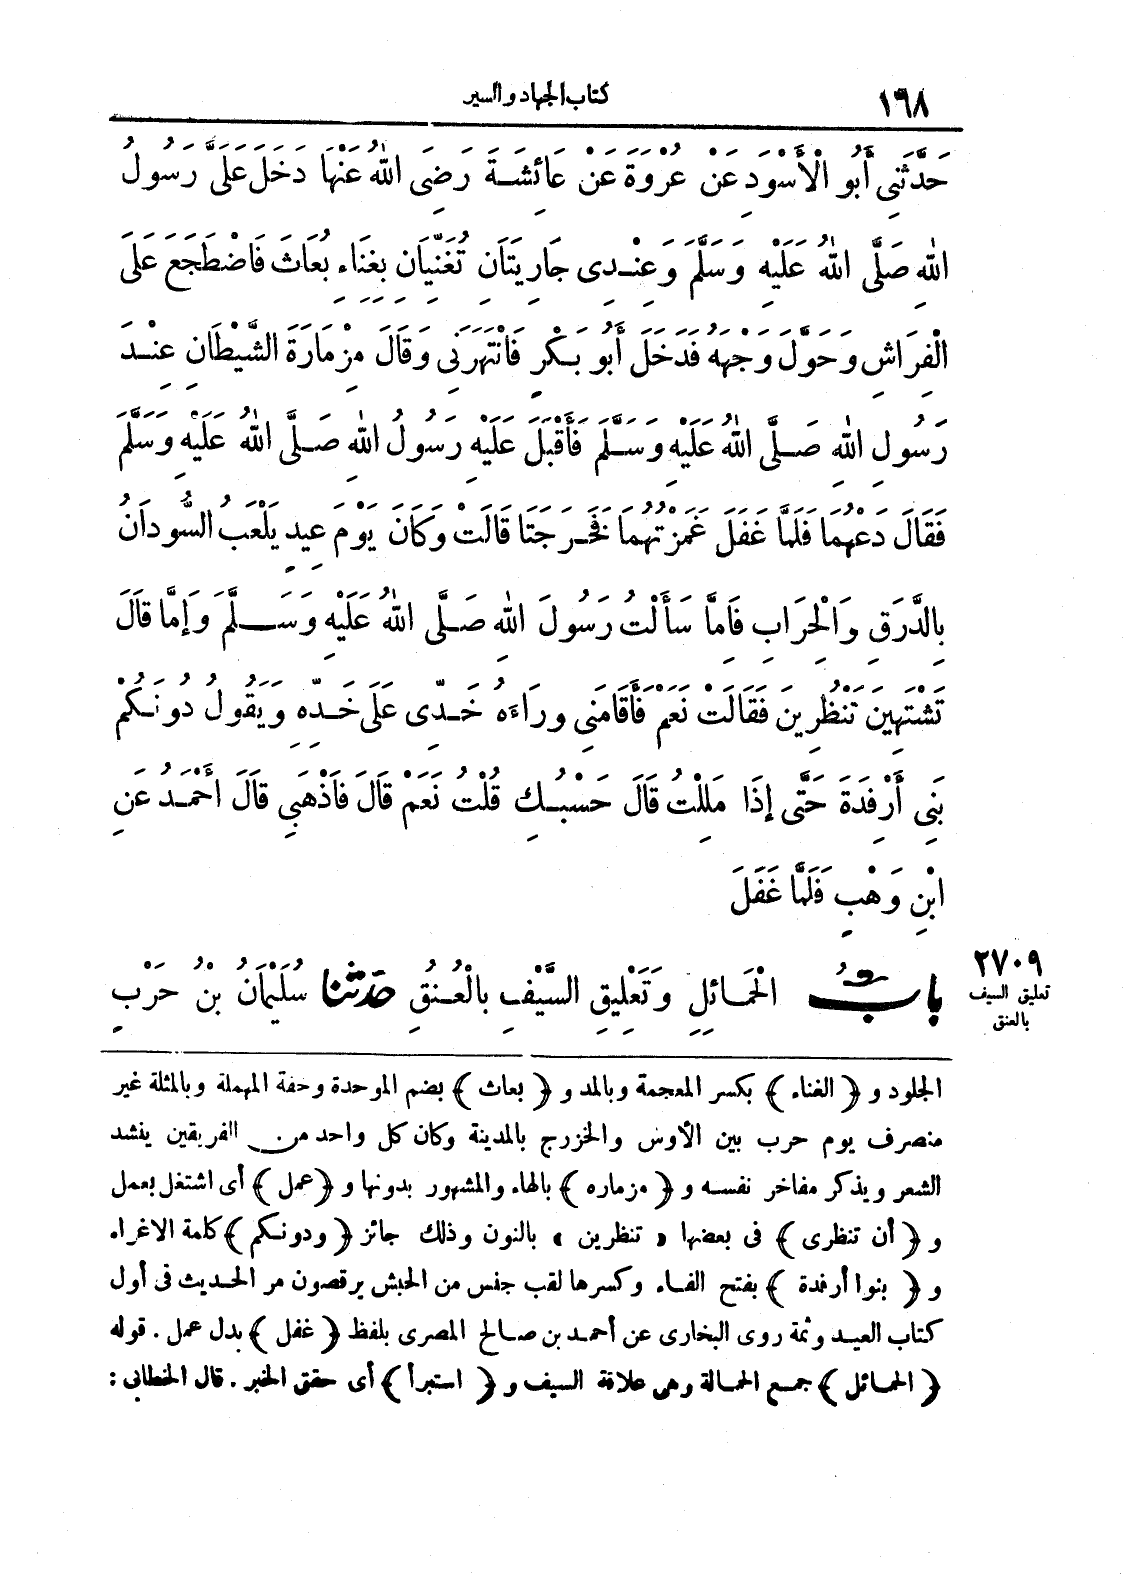 ١٦٨
كتاب الجهاد والسير
حَدَّثَنِي أَبُو الْأَسْوَدِ عَنْ عُرْوَةَ عَنْ عَائِشَةَ رَضِيَ اللهُ عَنْهَا دَخَلَ عَلَىَّ رَسُولُ
اللهِ صَلَّى اللهُ عَلَيْهِ وَسَلَّمَ وَعِنْدِى جَارِيَتَانِ تُغَنِّيَانِ بِغِنَاءِ بُعَاثَ فَاضْطَجَعَ عَلَى
الْفِرَاشِ وَحَوَّلَ وَجْهَهُ فَدَخَلَ أَبُو بَكْرٍ فَانْتَهَرَنِى وَقَالَ مِزْمَارَةَ الشَّيْطَانِ عِنْدَ
رَسُولِ اللهِ صَلَّى اللهُ عَلَيْهِ وَسَلَّمَ فَأَقْبَلَ عَلَيْهِ رَسُولُ اللهِ صَلَّى اللهُ عَلَيْهِ وَسَلَّمَ
فَقَالَ دَعْهُمَا فَلَمَّا غَفَلَ غَمَزْتُهُمَا فَخَرَجَتَا قَالَتْ وَكَانَ يَوْمَ عِيدٍ يَلْعَبُ السُّودَانُ
بِالدَّرَقِ وَالْحِرَابِ فَإِمَّا سَأَلْتُ رَسُولَ اللهِ صَلَّى اللهُ عَلَيْهِ وَسَلَّمَ وَإِمَّا قَالَ
تَشْتَهِينَ تَنْظُرِينَ فَقَالَتْ نَعَمْ فَأَقَامَنِى وَرَاءَهُ خَدِّى عَلَى خَدِّهِ وَيَقُولُ دُونَكُمْ
بَنِى أَرْفِدَةَ حَتَّى إِذَا مَلِلْتُ قَالَ حَسْبُكِ قُلْتُ نَعَمْ قَالَ فَاذْهَبِى قَالَ أَحْمَدُ عَنِ
ابْنِ وَهْبٍ فَلَمَّا غَفَلَ
٢٧٠٩
تعليق السيف
بالعنق
بَابُ الْحَمَائِلِ وَتَعْلِيقِ السَّيْفِ بِالْعُنُقِ حَدَّثَنَا سُلَيْمَانُ بْنُ حَرْبٍ
الجلود و﴿ الغناء ﴾ بكسر المعجمة وبالمد و﴿ بعاث ﴾ بضم الموحدة وخفة المهملة وبالمثلة غير
منصرف يوم حرب بين الأوس والخزرج بالمدينة وكان كل واحد من الفريقين ينشد
الشعر ويذكر مفاخر نفسه و﴿ مزماره ﴾ بالهاء والمشهور بدونها و﴿ عمل ﴾ أى اشتغل بعمل
و﴿ أن تنظرى ﴾ فى بعضها « تنظرين » بالنون وذلك جائز ﴿ ودونكم ﴾ كلمة الاغراء
و﴿ بنوا أرفدة ﴾ بفتح الفاء وكسرها لقب جنس من الحبش يرقصون مر الحديث فى أول
كتاب العيد وثمة روى البخارى عن أحمد بن صالح المصرى بلفظ ﴿ غفل ﴾ بدل عمل . قوله
﴿ الحمائل ﴾ جمع الحمالة وهى علاقة السيف و﴿ استبرأ ﴾ أى حقق الخبر . قال الخطابى :